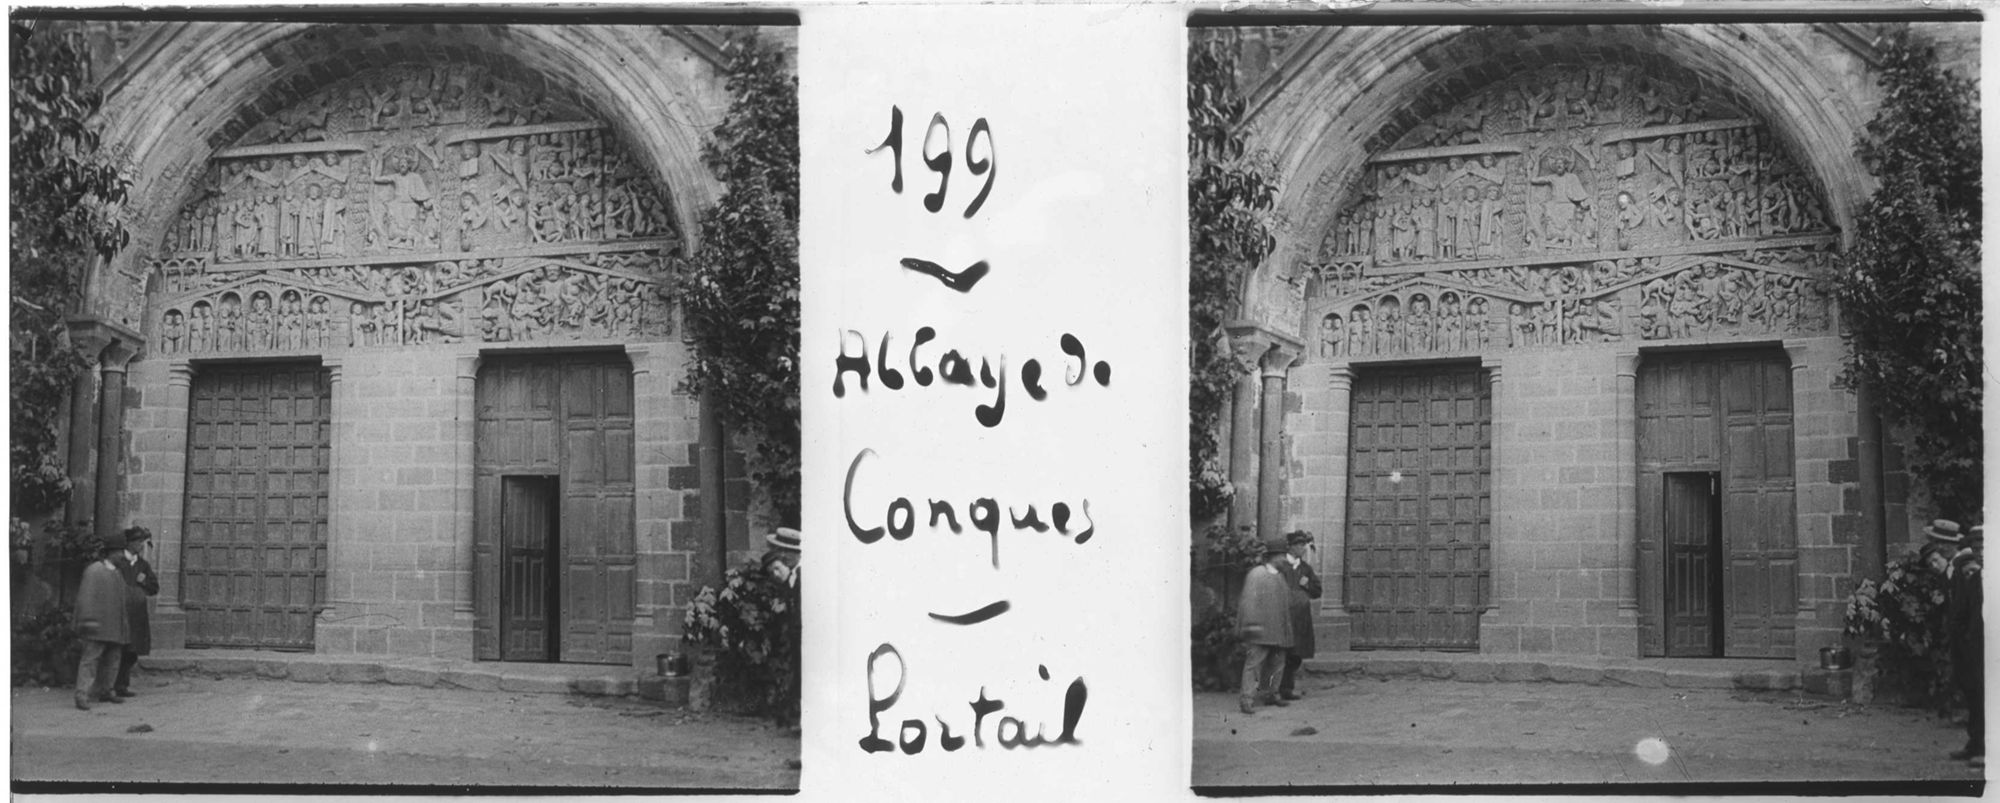 199
Abbaye de
Conques
Portail